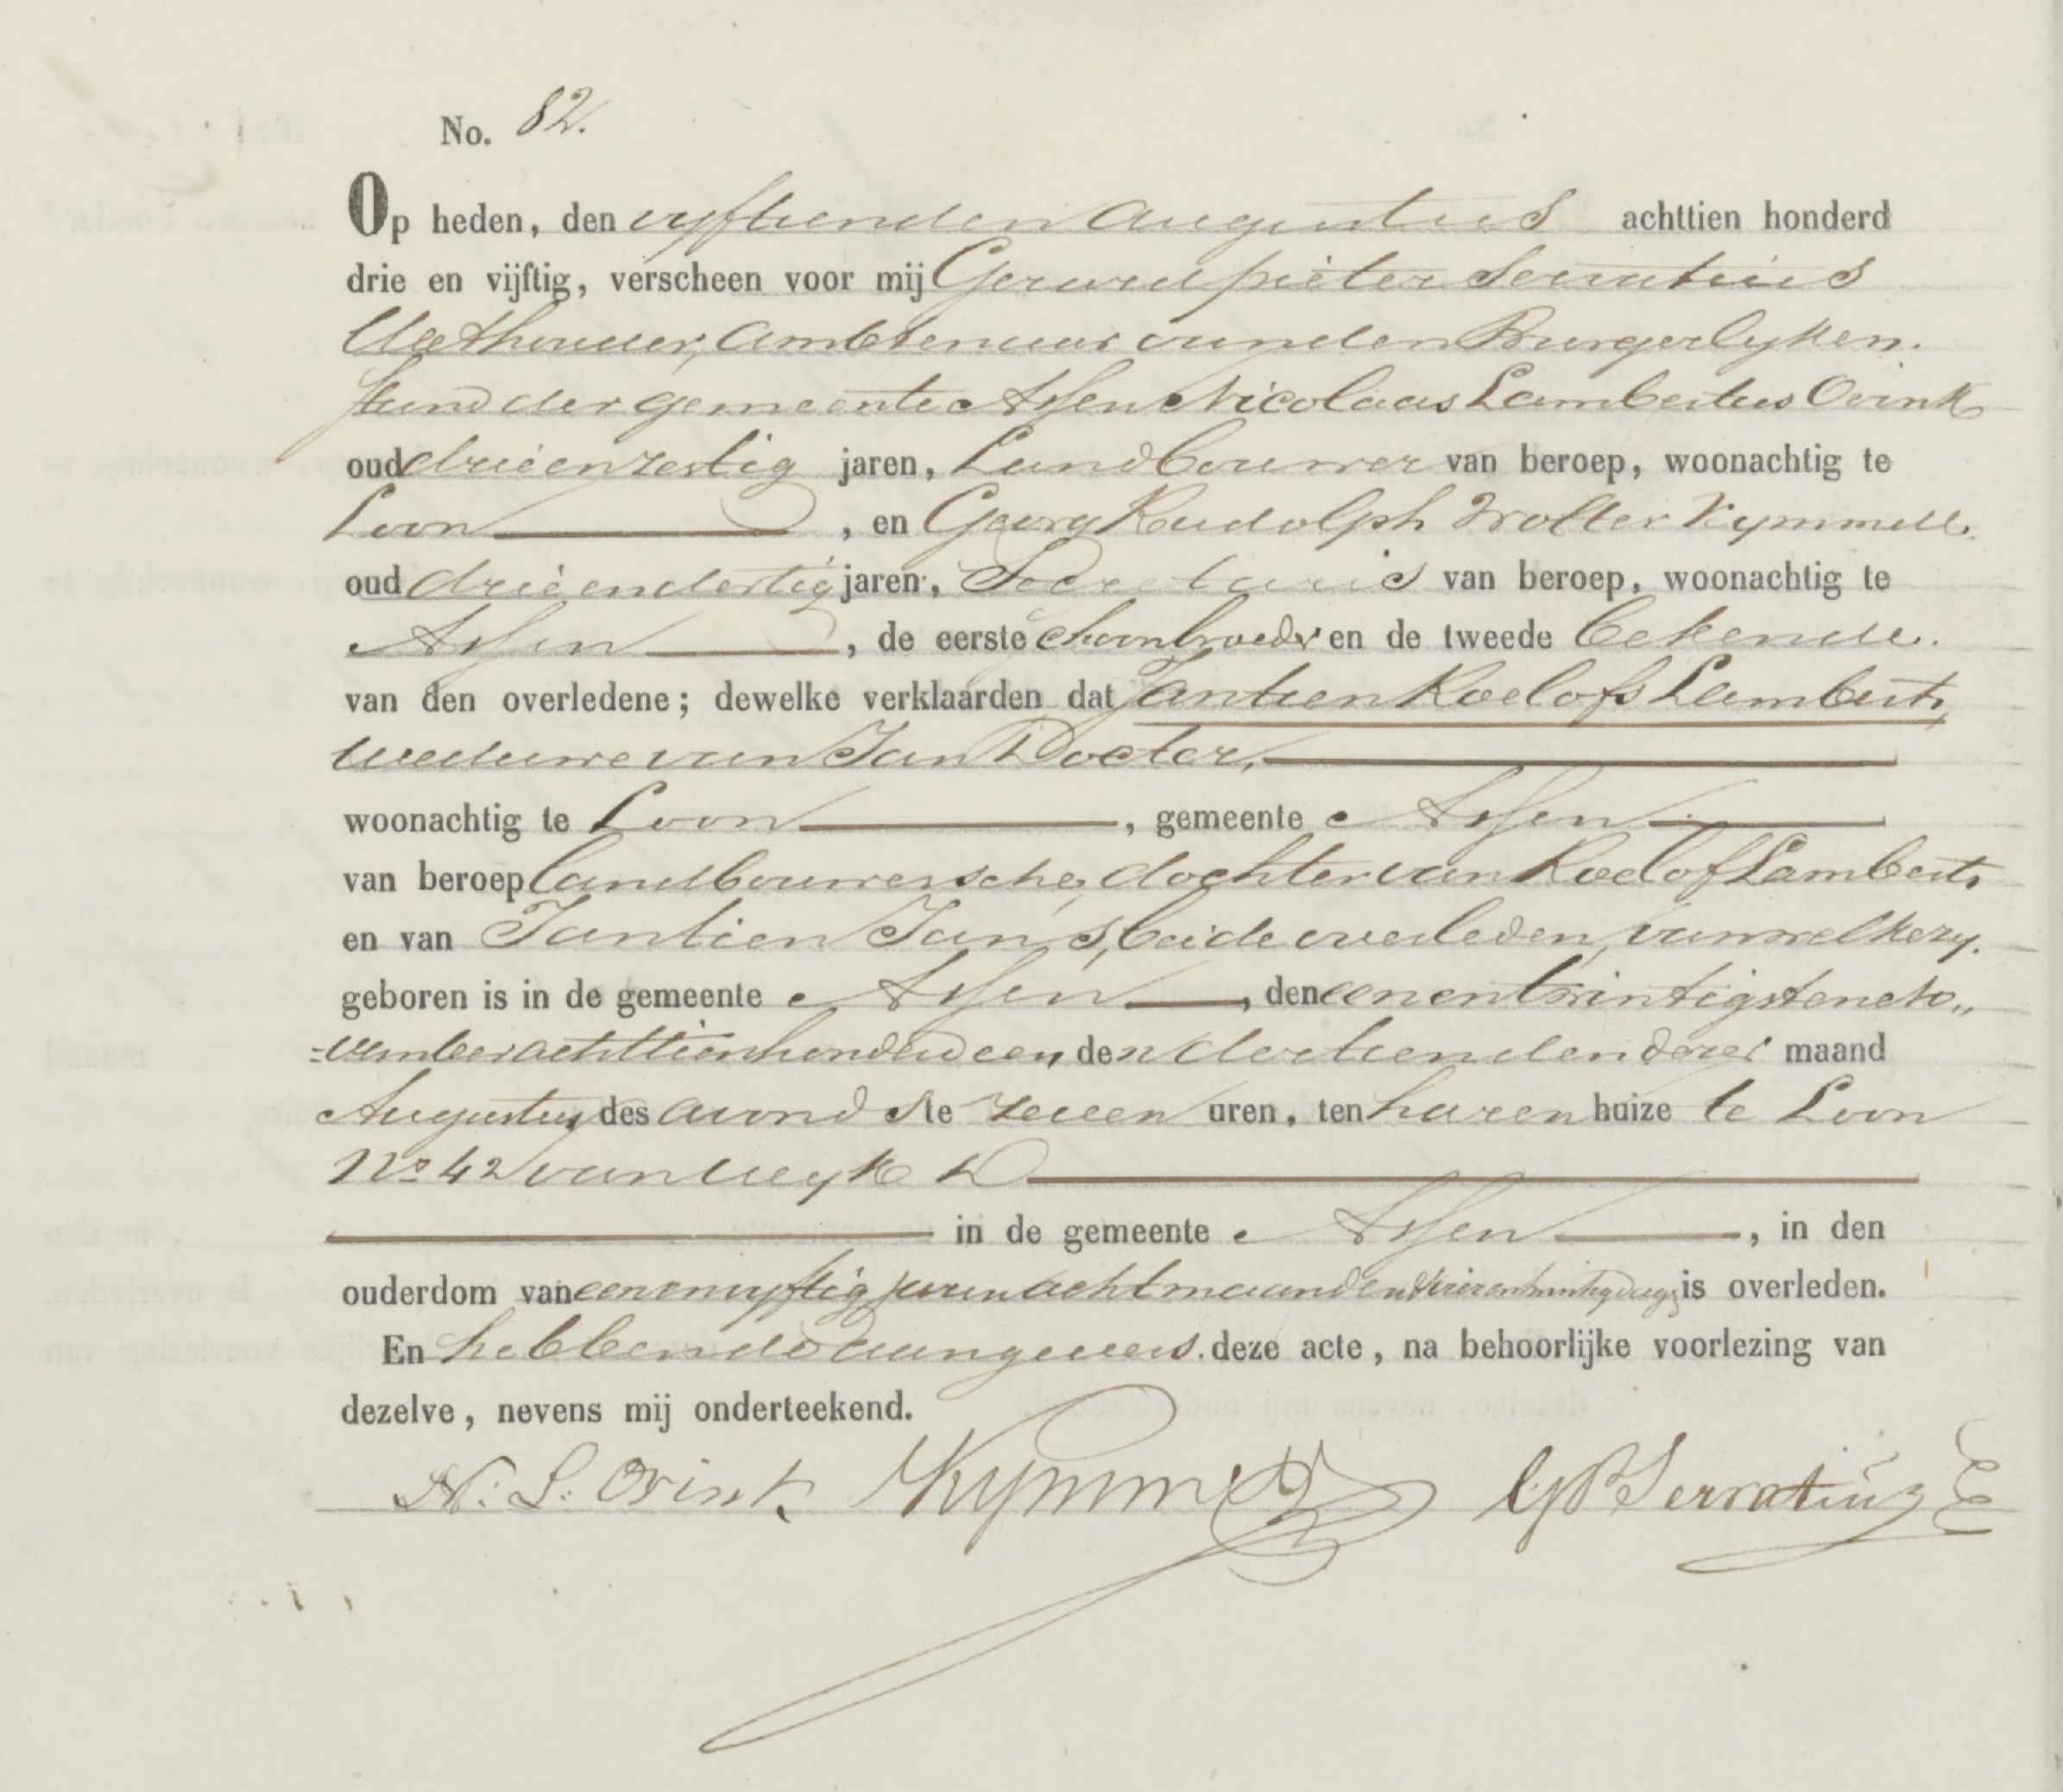 No. 82.
Op heden, den vyftienden Augustus achttien honderd
drie en vijftig, verscheen voor mij Gerard pieter Servatius
Wethouder, Ambtenaar van den Burgerlyken.
stand der gemeente Assen Nicolaas Lambertus Ovink
oud drieenzestig jaren, Landbouwer van beroep, woonachtig te
Loon, en Georg Rudolph Wolter Kymmell.
oud drieendertig jaren, Secretaris van beroep, woonachtig te
Assen, de eerste schoonbroeder en de tweede bekende.
van den overledene; dewelke verklaarden dat Jantien Roelofs Lamberts,
weduwe van Jan Doeter,
woonachtig te Loon, gemeente Assen
van beroep landbouwersche, dochter van Roelof Lamberts
en van Jantien Jans, beide overleden, van welke zy.
geboren is in de gemeente Assen, den eenentwintigsten No„
=vember achttienhonderd een, den dertienden dezer maand
Augustus, des avonds te zeven uren, ten haren huize te Loon
No 42 van Wyk D
in de gemeente Assen, in den
ouderdom van eenenvyftig jaren acht maanden drieentwintig dagen is overleden.
En hebben de aangevers. deze acte, na behoorlijke voorlezing van
dezelve, nevens mij onderteekend.
N. L. Ovink Kymmell GP Servatius